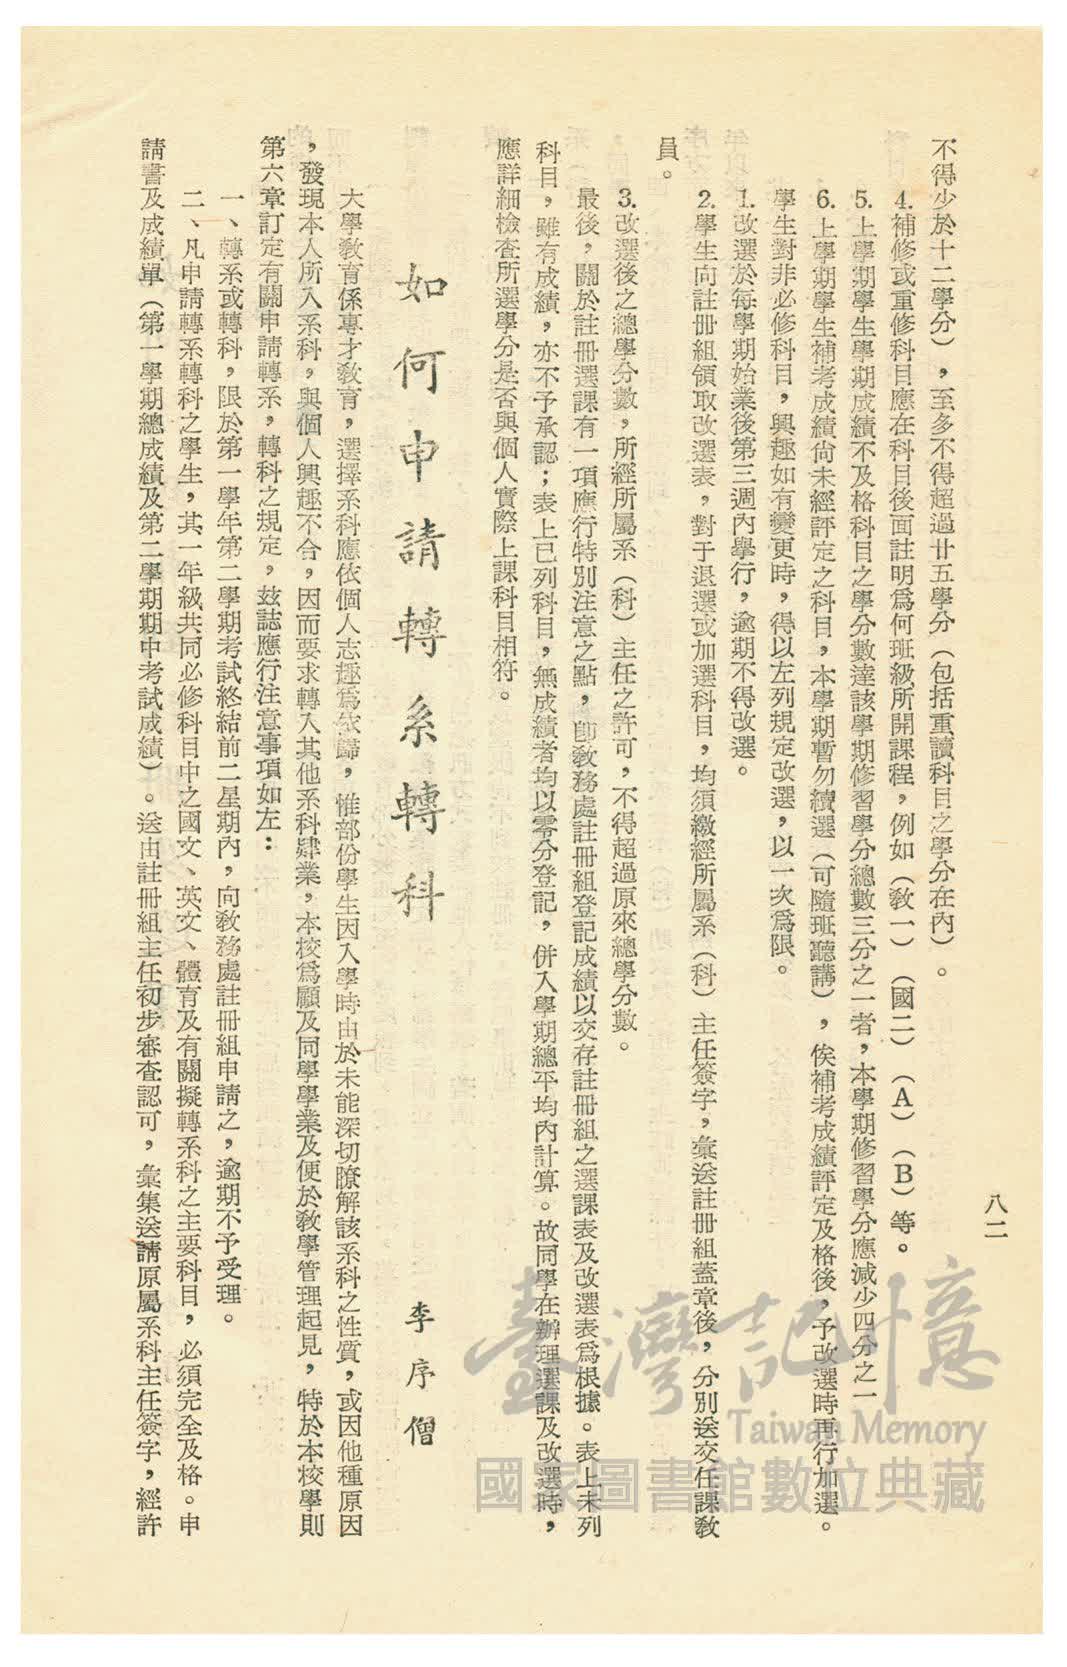 八二
不得少於十二學分），至多不得超過廿五學分（包括重讀科目之學分在內）。
4.補修或重修科目應在科目後面註明爲何班級所開課程，例如（教一）（國二）（A）（B）等。
5.上學期學生學期成績不及格科目之學分數達該學期修習學分總數三分之一者，本學期修習學分應減少四分之一
6.上學期學生補考成績尙未經評定之科目，本學期暫勿續選（可隨班聽講），俟補考成績評定及格後，予改選時再行加選。
學生對非必修科目，興趣如有變更時，得以左列規定改選，以一次爲限。
1.改選於每學期始業後第三週內學行，逾期不得改選。
2.學生向註冊組領取改選表，對于退選或加選科目，均須繳經所屬系（科）主任簽字，彙送註冊組蓋章後，分別送交任課教
員。
3.改選後之總學分數，所經所屬系（科）主任之許可，不得超過原來總學分數。
最後，關於註冊選課有一項應行特別注意之點，卽敎務處註冊組登記成績以交存註冊組之選課表及改選表爲根據。表上未列
科目，雖有成績，亦不予承認；表上已列科目，無成績者均以零分登記，併入學期總平均內計算。故同學在辦理選課及改選時，
應詳細檢查所選學分是否與個人實際上課科目相符。
如何申請轉系轉科
李序僧
大學敎育係專才敎育，選擇系科應依個人志趣爲依歸，惟部份學生因入學時由於未能深切瞭解該系科之性質，或因他種原因
，發現本人所入系科，與個人興趣不合，因而要求轉入其他系科肄業，本校爲顧及同學學業及便於敎學管理起見，特於本校學則
第六章訂定有關申請轉系，轉科之規定，玆誌應行注意事項如左：
一、轉系或轉科，限於第一學年第二學期考試終結前二星期內，向敎務處註冊組申請之，逾期不予受理。
二、凡申請轉系轉科之學生，其一年級共同必修科目中之國文、英文、體育及有關擬轉系科之主要科目，必須完全及格。申
請書及成績單（第一學期總成績及第二學期期中考試成績）。送由註冊組主任初步審查認可，彙集送請原屬系科主任簽字，經許
臺灣記憶
Taiwan Memory
國家圖書館數位典藏